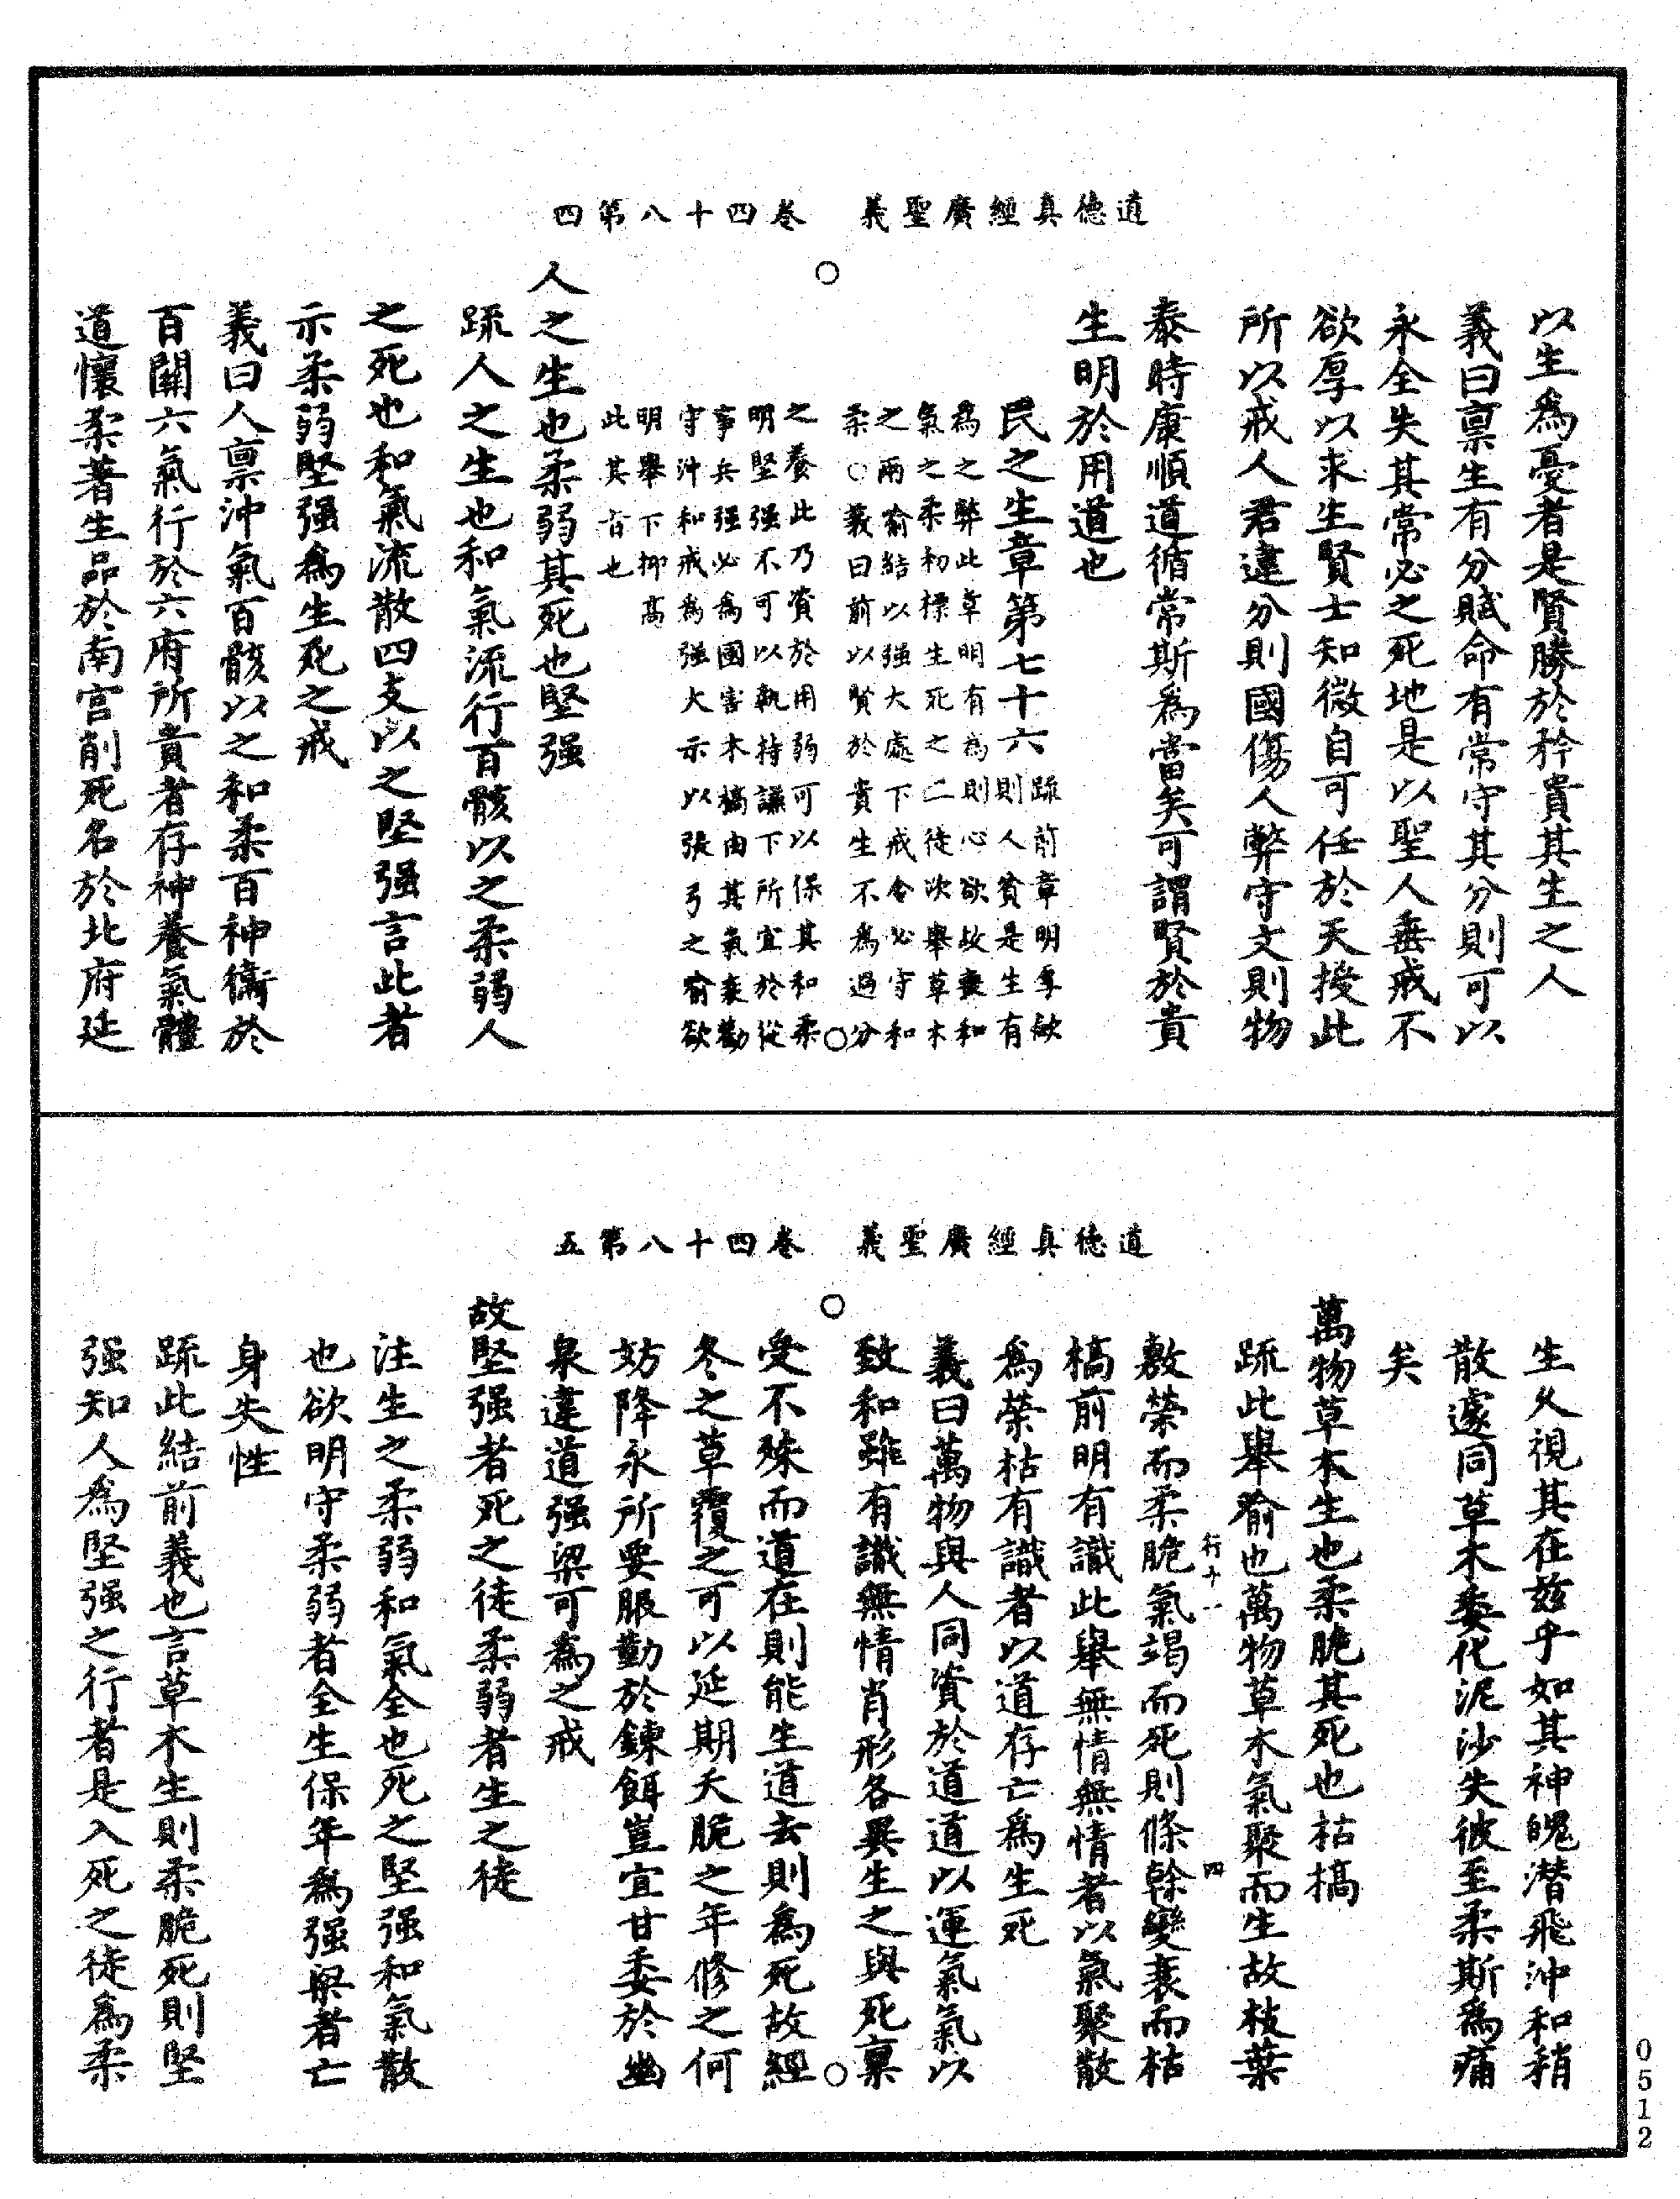 道德真經廣聖義　卷四十八第四
以生爲憂者是賢勝於矜貴其生之人
義曰禀生有分賦命有常守其分則可以
永全失其常必之死地是以聖人垂戒不
欲厚以求生賢士知微自可任於天授此
所以戒人君違分則國傷人弊守文則物
泰時康順道循常斯爲當矣可謂賢於貴
生明於用道也
民之生章第七十六
疏前章明厚斂
則人貧是生有
爲之弊此章明有爲則心欲故喪和
氣之柔初標生死之二徒次舉草木
之兩喻結以强大處下戒令必守和
柔○義曰前以賢於貴生不爲過分
之養此乃資於用弱可以保其和柔
明堅强不可以執持謙下所宜於從
事兵强必爲國害木槁由其氣衰勸
守沖和戒爲强大示以張弓之喻欲
明舉下抑高
此其旨也
人之生也柔弱其死也堅强
疏人之生也和氣流行百骸以之柔弱人
之死也和氣流散四支以之堅强言此者
示柔弱堅强爲生死之戒
義曰人禀沖氣百骸以之和柔百神衛於
百關六氣行於六府所貴者存神養氣體
道懷柔著生品於南宫削死名於北府延
道德真經廣聖義　卷四十八第五
生久視其在兹乎如其神魄潛飛沖和稍
散遽同草木委化泥沙失彼至柔斯爲痛
矣
萬物草木生也柔脆其死也枯槁
疏此舉喻也萬物草木氣聚而生故枝葉
行十一
四
敷榮而柔脆氣竭而死則條幹變衰而枯
槁前明有識此舉無情無情者以氣聚散
爲榮枯有識者以道存亡爲生死
義曰萬物與人同資於道道以運氣氣以
致和雖有識無情肖形各異生之與死禀
受不殊而道在則能生道去則爲死故經
冬之草覆之可以延期夭脆之年修之何
妨降永所要服勤於鍊餌豈宜甘委於幽
泉違道强梁可爲之戒
故堅强者死之徒柔弱者生之徒
注生之柔弱和氣全也死之堅强和氣散
也欲明守柔弱者全生保年爲强梁者亡
身失性
疏此結前義也言草木生則柔脆死則堅
强知人爲堅强之行者是入死之徒爲柔
0512